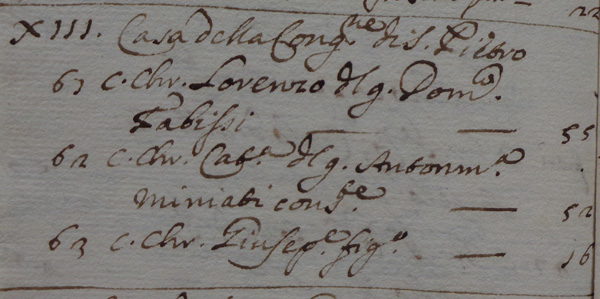 22
XIII. Casa della Cong.ne di S. Pietro
61 c. Chr. Lorenzo del q. Dom.co
Tabissi — — 55
62 c. Chr. Cat.a del q. Antonm.a
Miniati cons.te — 52
63 c. Chr. Giusep.e fig.o — 16